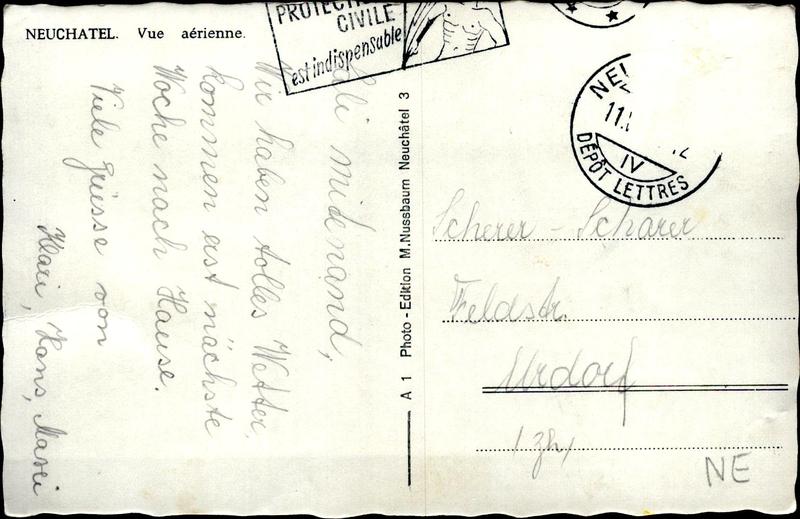 NEUCHATEL. Vue aérienne.
PROTECTI
CIVILE
est indispensable
NEU
11.
IV
DÉPÔT LETTRES
A 1 Photo - Edition M. Nussbaum Neuchâtel 3
midenand,
Wir haben tolles Wetter,
kommen erst nächste
Woche nach Hause.
Viele Grüsse von
Hans,
Scherer - Schärer
Feldstr.
Urdorf
(zh)
NE